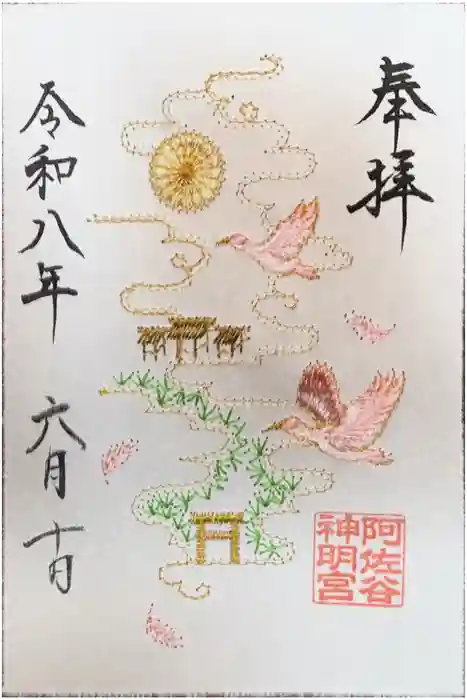 奉拝
阿佐谷
神明宮
令和八年 六月 十日